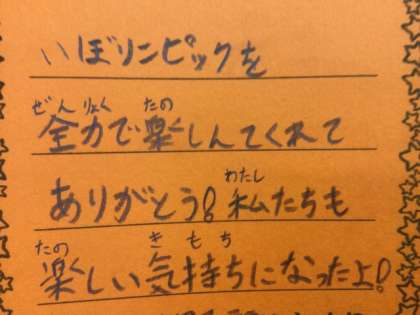 いぼリンピックを
ぜんりょく たの
全力で楽しんでくれて
わたし
ありがとう!私たちも
たの きもち
楽しい気持ちになったよ!